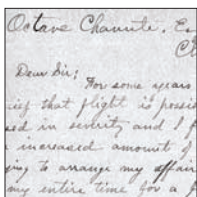 Octave Chanute, Es
Ch
Dear Sir;
For some years
lief that flight is possib
sed in severity and I f
increased amount of
ing to arrange my affair
my entire time for a f